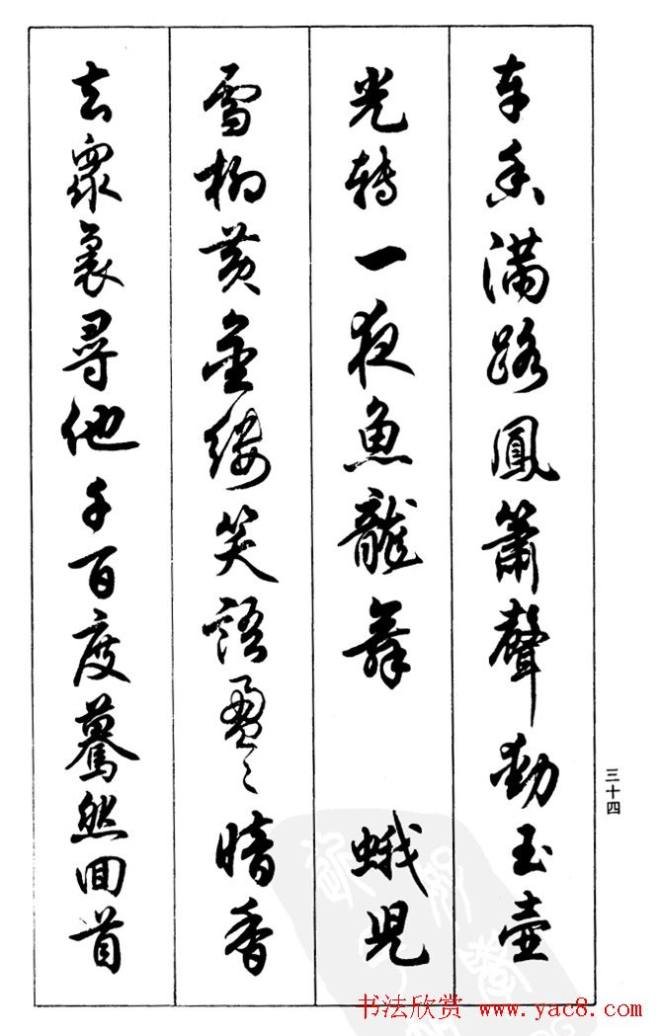 车香满路鳳簫聲動玉壺
光转一夜魚龍舞 蛾兒
雪柳黄金缕笑語盈〻暗香
去眾裏尋他千百度驀然回首
三十四
书法欣赏 www.yac8.com